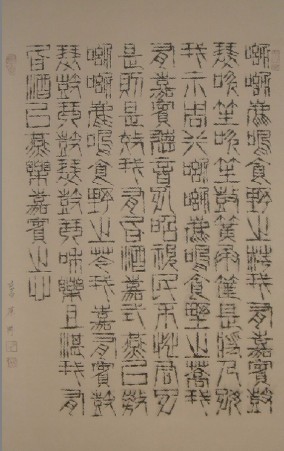 呦呦鹿鳴食野之苹我有嘉賓鼓
瑟吹笙吹笙鼓簧承筐是將人好
我示周行呦呦鹿鳴食野之蒿我
有嘉賓德音孔昭視民不恌君子
是則是效我有旨酒嘉式燕以敖
呦呦鹿鳴食野之芩我嘉有賓鼓
瑟鼓琴鼓瑟鼓琴和樂且湛我有
旨酒以燕樂嘉賓之心